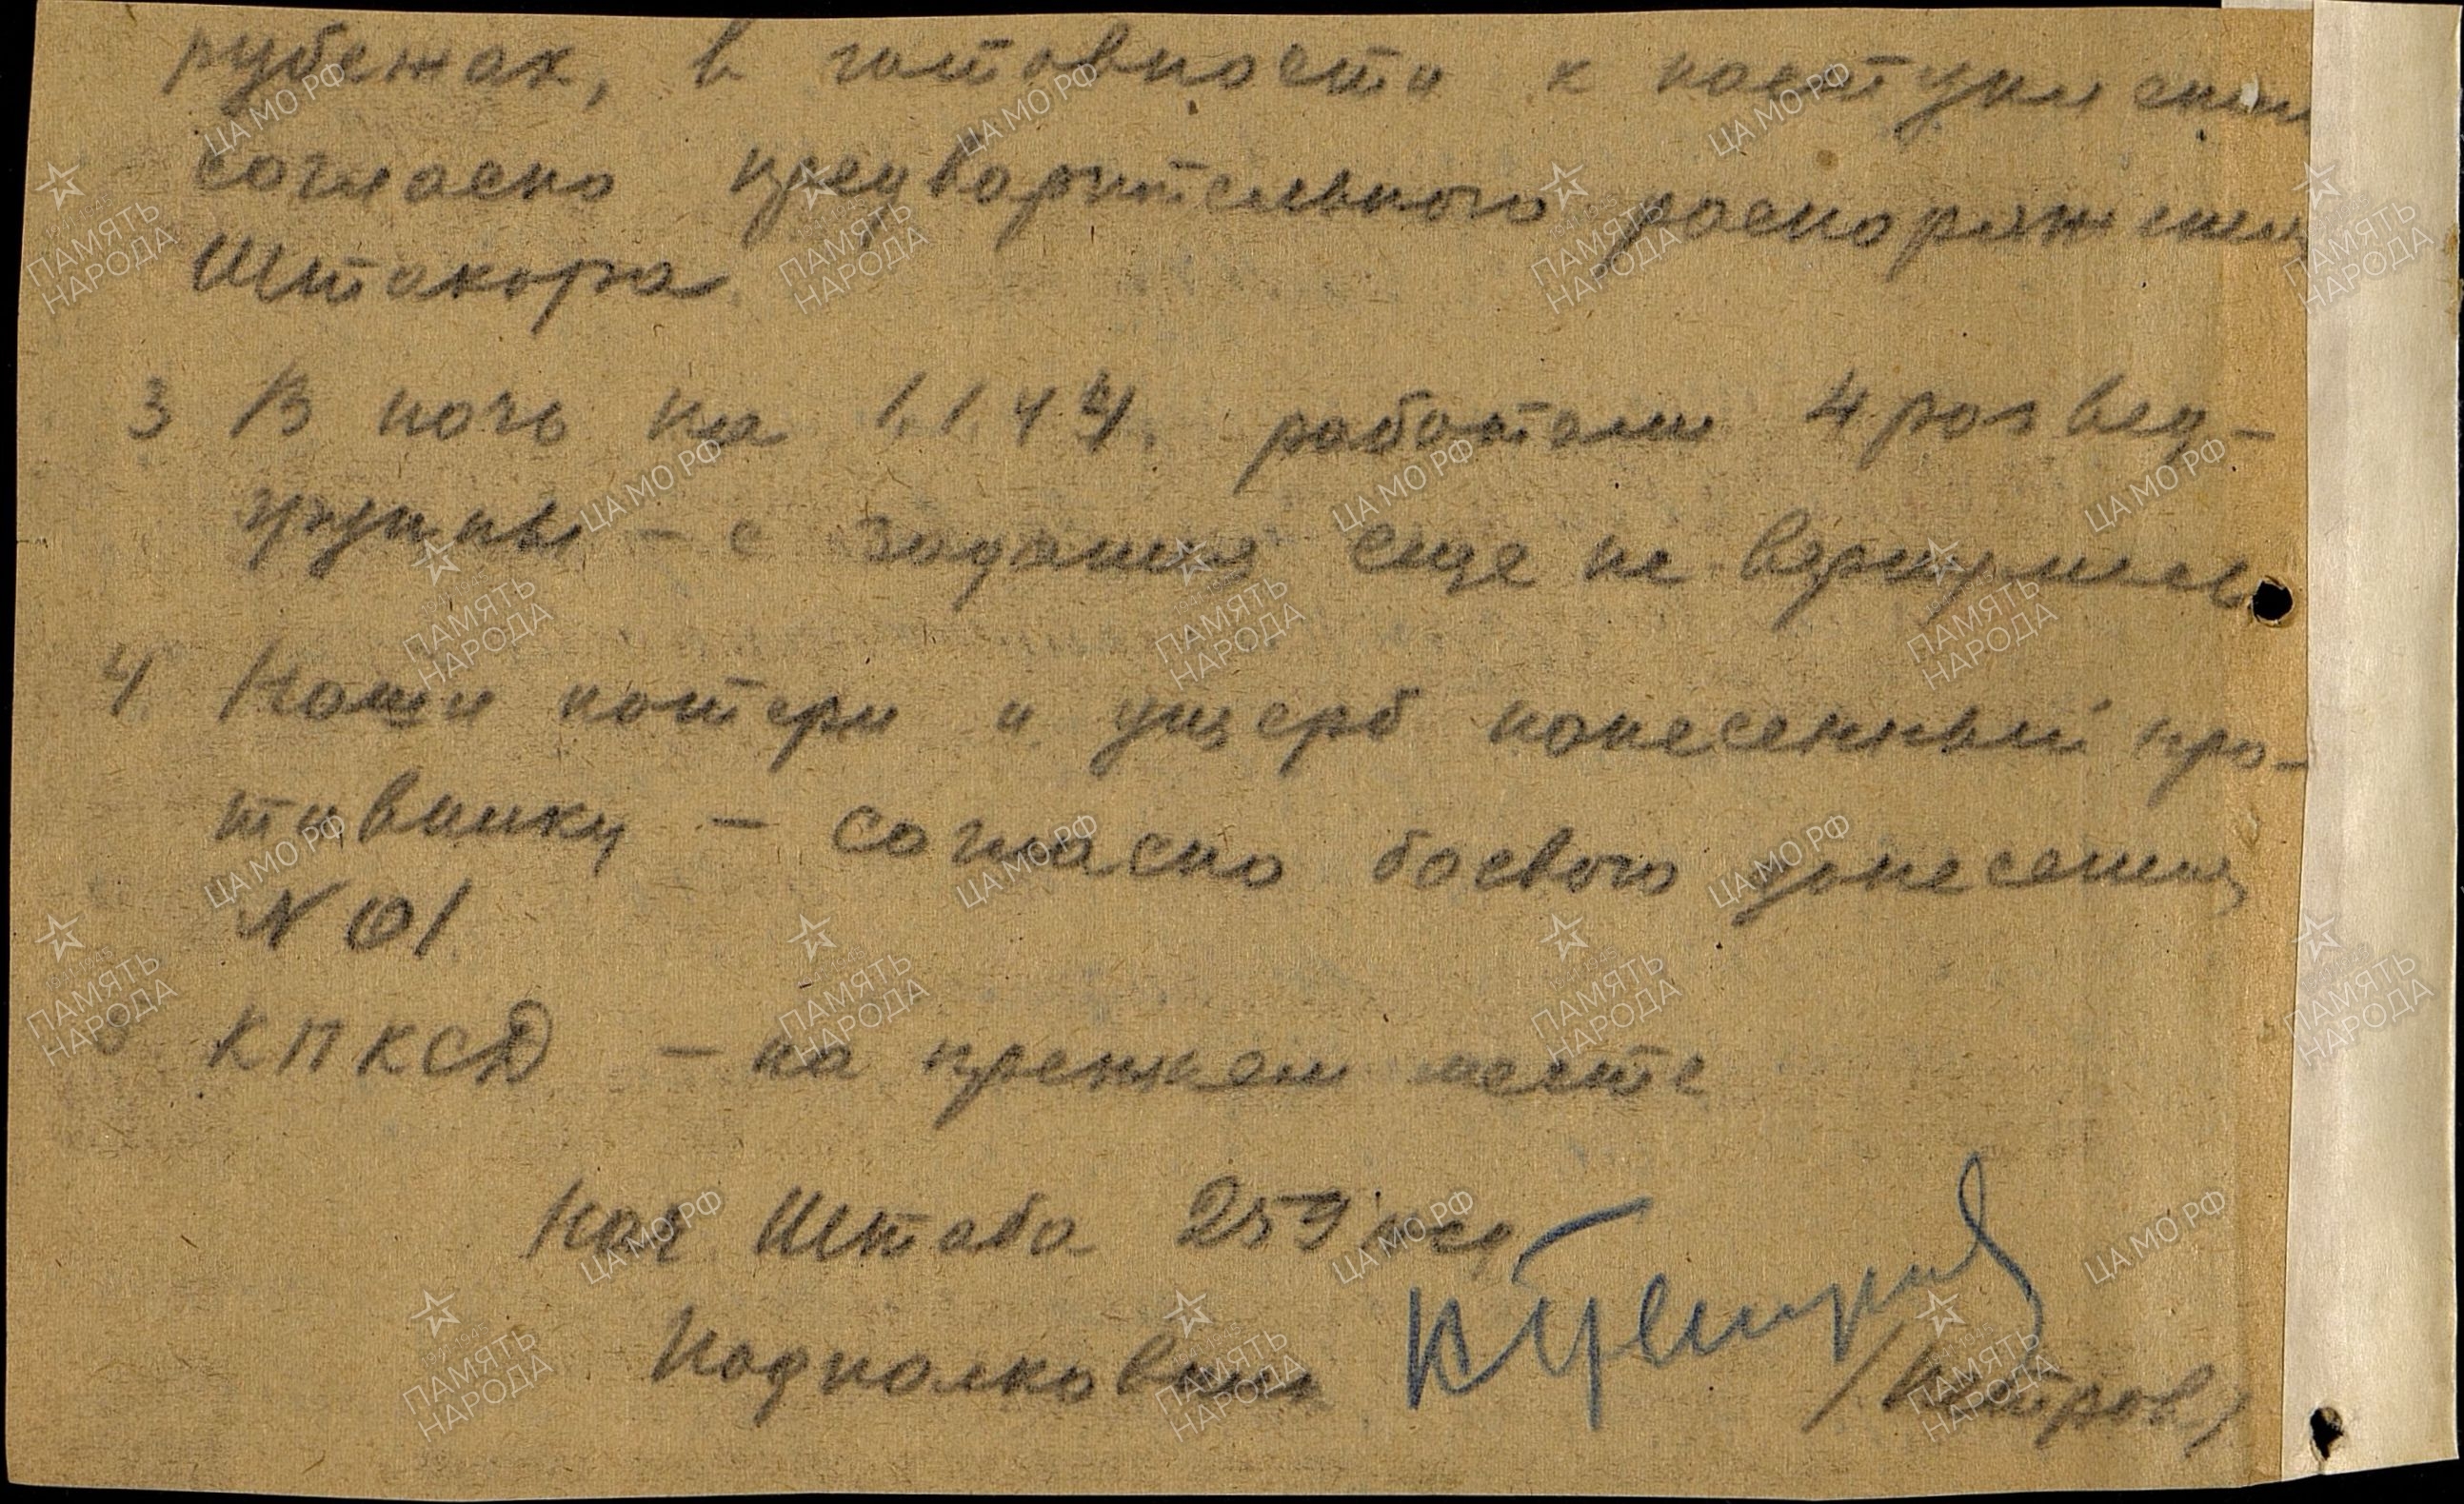 рубежах, в готовности к наступлению
согласно предварительного распоряжения
Штакора
3 В ночь на 1.1.44. работали 4 развед-
группы – с задания еще не вернулись
4. Наши потери и ущерб нанесенный про-
тивнику – согласно боевого донесения
N 01.
КП КСД – на прежнем месте
Нач Штаба 259 ксд
Подполковник
/Петров/
ЦА МО РФ
ПАМЯТЬ
НАРОДА